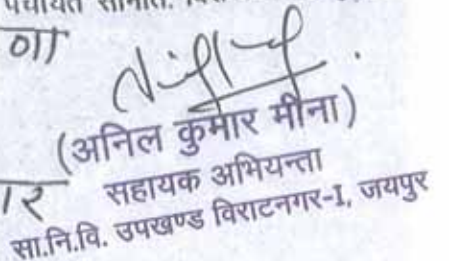 पंचायत समिति.
(अनिल कुमार मीना)
सहायक अभियन्ता
सा.नि.वि. उपखण्ड विराटनगर-I, जयपुर